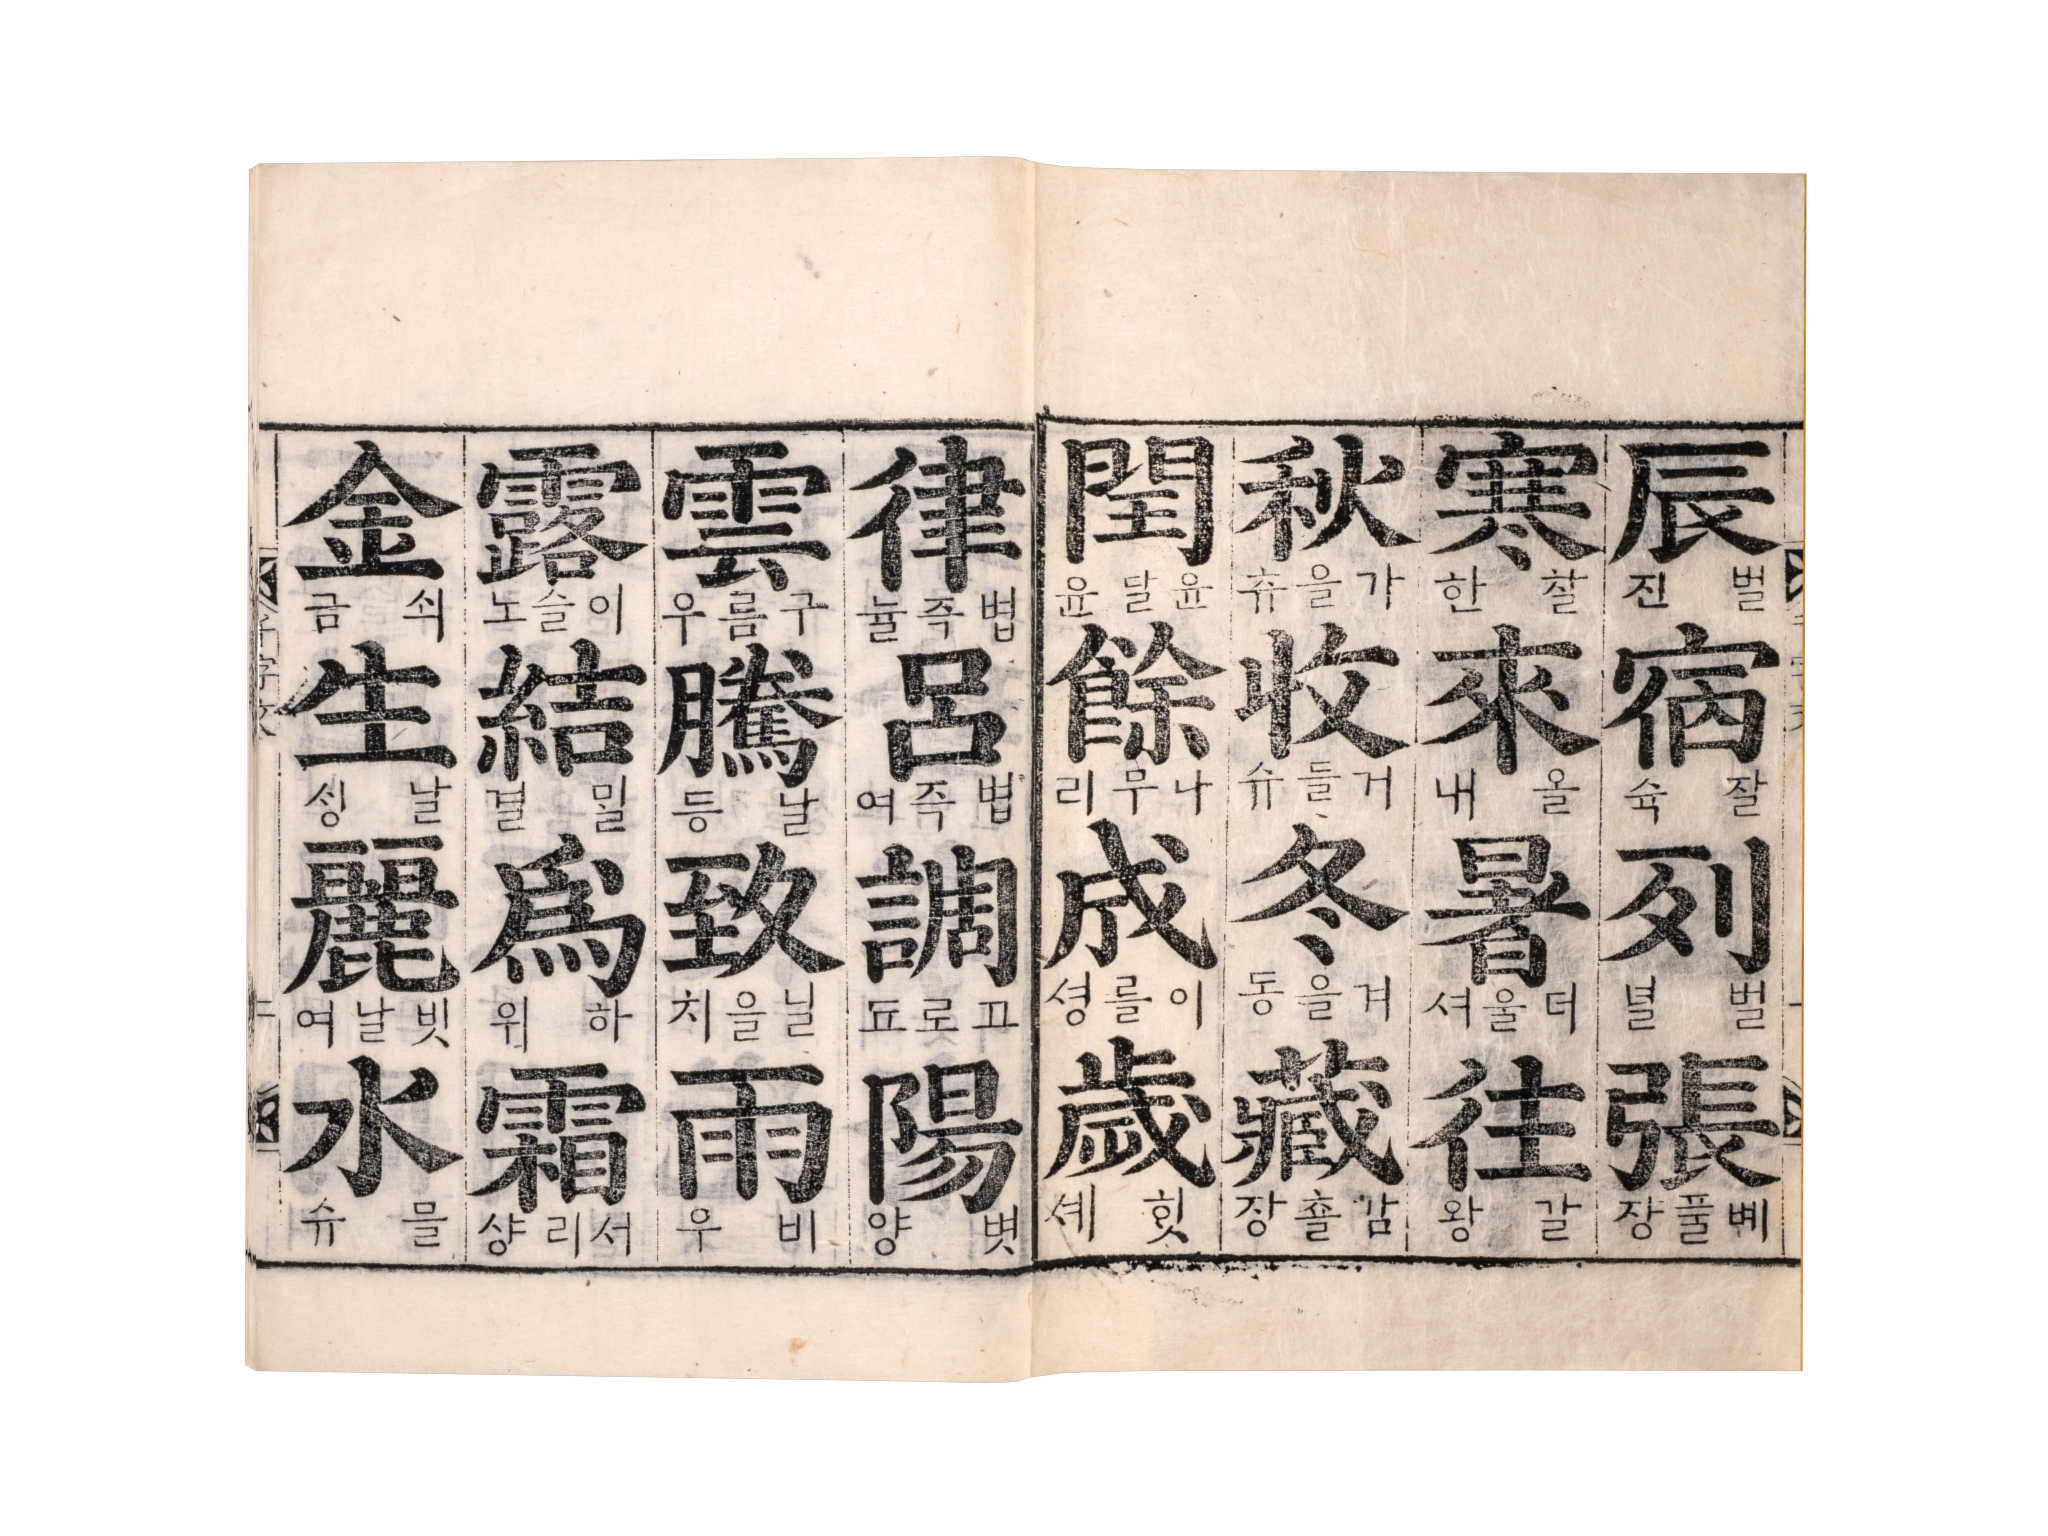 辰 벌 진 宿 잘 슉 列 벌 녈 張 볘 풀 쟝
寒 찰 한 來 올 내 暑 더 울 셔 往 갈 왕
秋 가 을 츄 收 거 들 슈 冬 겨 을 동 藏 감 촐 장
閏 윤 달 윤 餘 나 무 리 成 이 를 셩 歲 힛 셰
律 법 즉 뉼 呂 법 즉 여 調 고 로 됴 陽 볏 양
雲 구 름 우 騰 날 등 致 닐 을 치 雨 비 우
露 이 슬 노 結 밀 결 爲 하 위 霜 서 리 샹
金 쇠 금 生 날 싱 麗 빗 날 여 水 믈 슈